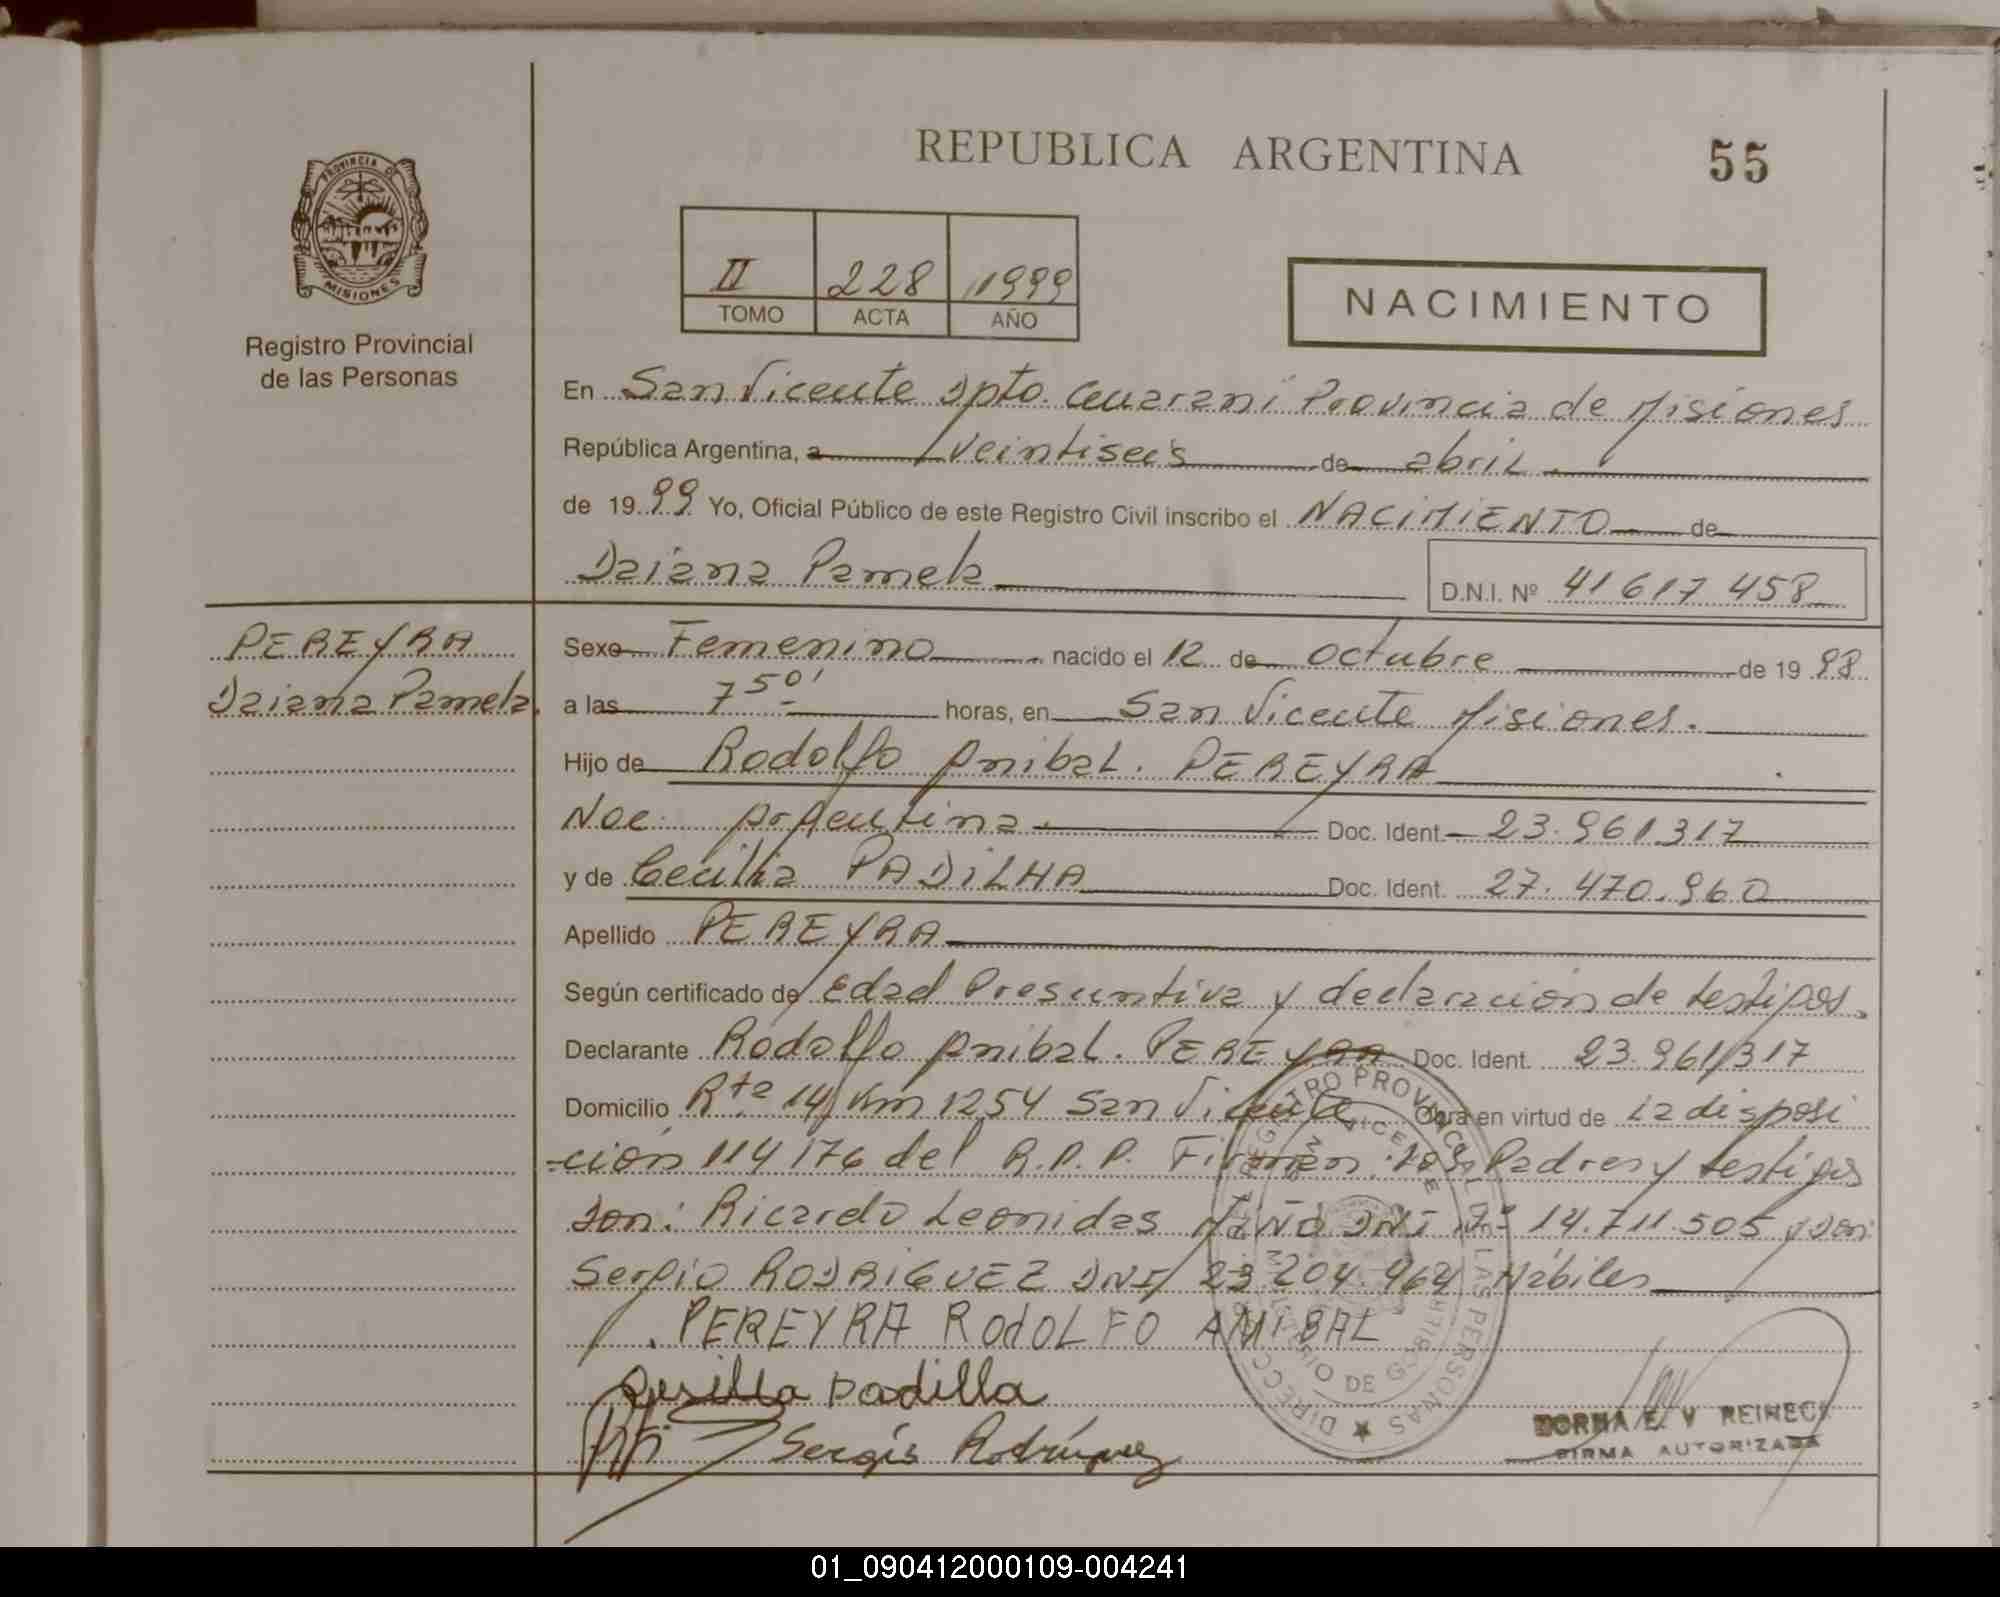 REPUBLICA ARGENTINA
55
PROVINCIA DE
MISIONES
Registro Provincial
de las Personas
II 228 1999
TOMO ACTA AÑO
NACIMIENTO
En San Vicente Dpto. Guaraní Provincia de Misiones
República Argentina, a veintiseis de abril
de 1999 Yo, Oficial Público de este Registro Civil inscribo el NACIMIENTO de
Daiana Pamela
D.N.I. Nº 41 617 458
PEREYRA
Daiana Pamela.
Sexo Femenino nacido el 12 de octubre de 1998
a las 7 50' horas, en San Vicente Misiones.
Hijo de Rodolfo Anibal. PEREYRA
Nac. Argentina. Doc. Ident. 23.961.317
y de Cecilia PADILHA Doc. Ident. 27.470.960
Apellido PEREYRA
Según certificado de Edad Presuntiva y declaración de testigos.
Declarante Rodolfo Anibal. PEREYRA Doc. Ident. 23.961.317
Domicilio Rta 14 Km 1254 San Vicente. Obra en virtud de la disposi
-ción 114176 del R.P.P. Firman: los Padres y testigos
Don: Ricardo Leonidas DNI Nº 14.711.505 y Don:
Sergio RODRIGUEZ DNI 23 204.964 Hábiles
PEREYRA RODOLFO ANIBAL
Padilla
Sergio Rodríguez
DIRECC REGISTRO PROVINCIAL DE LAS PERSONAS
SAN VICENTE
MINISTERIO DE GOBIERNO
NORMA E. V REINECK
FIRMA AUTORIZADA
01_090412000109-004241